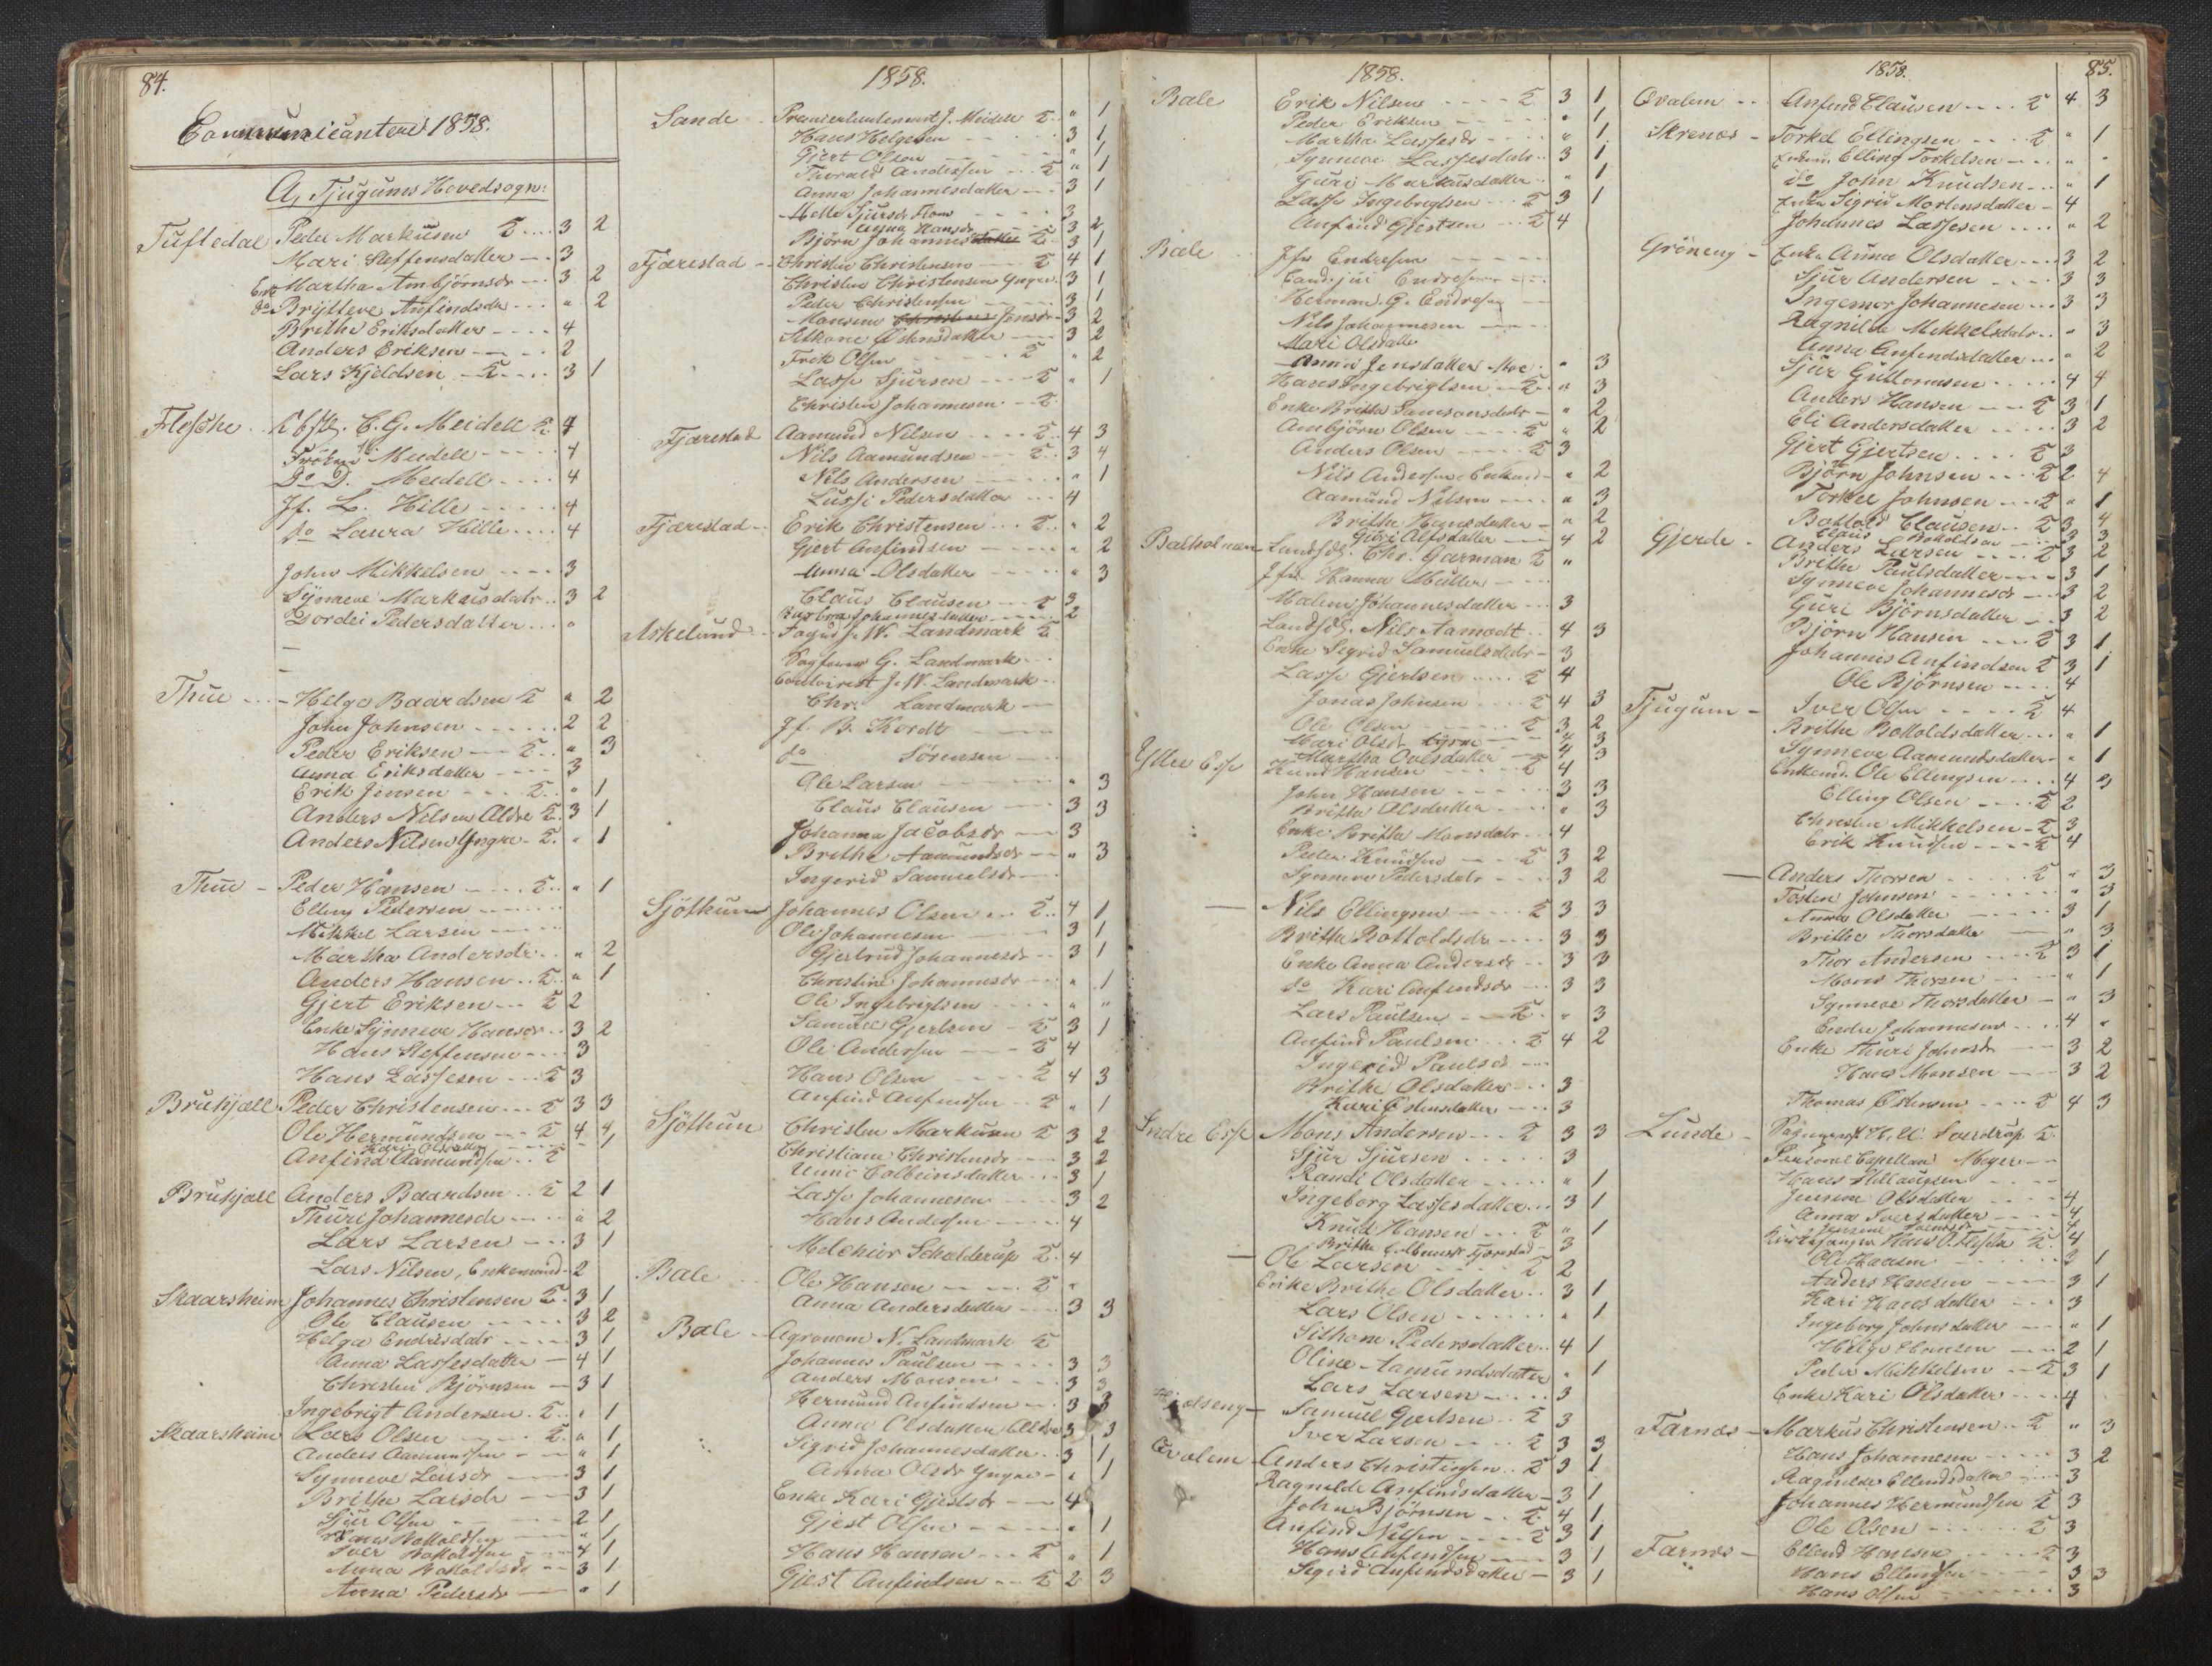 84.
Communicantene 1858.
A, Tjugums Hovedsogn:
Tuftedal Peder Markusen 3 2
Mari Steffensdatter 3
Enke Martha Ambjörnsdr 3 2
do Brylleve Anfindsdr " 2
Brithe Eriksdatter 4
Anders Eriksen 2
Lars Kjeldsen 3 1
Flesche C. G. Meidell 4
Frøken Meidell 4
Do D. Meidell 4
Jf. L. Hille 4
do Laura Hille 4
John Mikkelsen 3
Synneve Markusdatr 3 2
Gordei Pedersdatter "
Thue Helge Baardsen " 2
John Johnsen 2 2
Peder Eriksen " 3
Anna Eriksdatter 3
Erik Jensen " 1
Anders Nilsen Aldre 3 1
Anders Nilsen Yngre " 1
Thue Peder Hansen " 1
Elling Pedersen
Mikkel Larsen
Martha Andersdr " 2
Anders Hansen " 1
Gjert Eriksen 2
Enke Synneve Hansdr 3 2
Hans Steffensen 3
Hans Lassesen 3
Brukjæll Peder Christensen 3 3
Ole Hermundsen 4 4
Kari Olsdatter " 1
Anfind Aamundsen
Brukjæll Anders Baardsen 2 1
Thuri Johannesdr " 2
Lars Larsen 3 1
Lars Nilsen, Enkemand 2
Skaarsheim Johannes Christensen 3 1
Ole Clausen 3 2
Helga Endresdatr 3 1
Anna Lassesdatter 4 1
Christen Björnsen 3 1
Ingebrigt Andersen " 1
Skaarsheim Lars Olsen " 1
Anders Aamundsen " 1
Synneve Larsdr 3 1
Brithe Larsdr 3 1
Sjur Olsen 2 1
Hans Bottolfsen " 1
Iver Bottolfsen 4 1
Anna Bottolfsdr 3 1
Anna Pedersdr " 1
1858.
Sande Premierleutenant J. Meidell " 1
Hans Helgesen 3 1
Gjert Olsen " 1
Thorald Andersen " 1
Anna Johannesdatter 3 1
Mette Sjursdr Flom 3
Anna Hansdr 3 2
Björn Johannes 3 1
Fjærestad Christen Christensen 4 1
Christen Christensen Yngre 3 1
Peder Christensen 3 1
Mansine Jensdr 3 2
Sitkone Østensdatter 3 2
Erik Olsen " 2
Lasse Sjursen " 1
Christen Johannesen
Fjærestad Aamund Nilsen 4 3
Nils Aamundsen 3 4
Nils Andersen " 1
Lussi Pedersdatter 4
Fjærestad Erik Christensen " 2
Gjert Anfindsen " 2
Anna Olsdatter " 3
Claus Clausen 3
Barbra Johannesdatter 2
Askelund Foged W. Landmark
Sagfører G. Landmark
Contoirist J. W. Landmark
Chr. Landmark
Jf. B. Kordt
do Sörensen
Ole Larsen " 3
Claus Clausen 3 3
Johanna Jacobsdr 3
Brithe Aamundsdr " 3
Ingerid Samuelsdr
Sjöthun Johannes Olsen 4 1
Ole Johannesen 3 1
Gjertrud Johannesdr 3 1
Christine Johannesdr " 1
Ole Ingebrigtsen " "
Samuel Gjertsen 3 1
Ole Andersen 4
Hans Olsen 4 3
Anfind Anfindsen " 1
Sjöthun Christen Markusen 3 2
Christiane Christensdr 3 2
Unni Colbeinsdatter 3 1
Lasse Johannesen 3 2
Hans Andersen 4
Melchior Schelderup 4
Bale Ole Hansen "
Anna Andersdatter 3 3
Bale Agronom N. Landmark
Johannes Paulsen 3 3
Anders Monsen 3 3
Hermund Anfindsen 3 3
Anna Olsdatter Aldre 3 3
Sigrid Johannesdatter 3 1
Anna Olsdr Yngre " 1
Enke Kari Gjestsdr 4
Gjest Olsen " 1
Hans Hansen " 1
Gjest Anfindsen 2 3
1858.
Bale Erik Nilsen 3 1
Peder Eriksen " 1
Martha Lassesdr " 1
Synneve Lassesdatr 3 1
Guri Markusdatter " 1
Lasse Ingebrigtsen 3 1
Anfind Gjestsen 4
Bale Jfr Endresen
Cand. jur. Endresen
Herman G. Endresen
Nils Johannesen
Mari Olsdatter
Anna Jensdatter Moe " 3
Hans Ingebrigtsen " 3
Enke Britha Samsonsdatr " 2
Ambjörn Olsen " 2
Anders Olsen 3
Nils Andersen Enkemd " 2
Aamund Nilsen " 3
Brithe Hansdatter " 2
Guri Alfsdatter 4 2
Balholmen Landhdl. Chr. Garman "
Jfr Hanna Müller
Malene Johannesdatter 3
Landhdl. Nils Aamodt 4 3
Enke Sigrid Samuelsdatr 3
Lasse Gjertsen 4
Jonas Johnsen 4 3
Ole Olsen 3 2
Mari Olsd. 4 3
Martha Oresdatter 4 3
Ytre Esse Knud Hansen 4
John Hansen 3 3
Britha Olsdatter " 3
Enke Britha Monsdatr 4
Peder Knudsen 3 2
Synneve Pedersdatr 3 2
Nils Ellingsen 3 3
Britha Bottolfsdr 3 3
Enke Anna Andersdr 3 3
do Kari Anfindsdr 3 3
Lars Paulsen " 3
Anfind Paulsen 4 2
Ingerid Paulsdr
Brithe Olsdatter 3
Kari Østensdatter 3
Indre Esse Mons Andersen 3 3
Sjur Sjursen 3
Randi Olsdatter " 1
Ingeborg Lassesdatter 3 1
Knud Hansen " 1
Brithe Colbeinsdr Fjærestad 3
Ole Larsen 2
Enke Brithe Olsdatter 3 1
Lars Olsen " 1
Sithone Pedersdatter 4 1
Oline Aamundsdatter " 1
Lars Larsen 3
Samuel Gjertsen 3
Iver Larsen 3 3
Qvalem Anders Christensen 3 1
Ragnilde Anfindsdatter 3 1
John Björnsen 4 1
Anfind Nilsen 3 1
Hans Anfindsen 3 1
Sigrid Anfindsdatter 3 1
1858. 85.
Qvalem Anfind Clausen 4 3
Skrenæs Torkel Ellingsen " 1
Enkemd. Elling Torkelsen " "
do John Knudsen " 1
Enke Sigrid Mortensdatter 4
Johannes Lassesen " 2
Gröneng Enke Anna Olsdatter 3 2
Sjur Andersen 3 3
Ingemor Johannesen 3 3
Ragnilde Mikkelsdatr " 3
Anna Anfindsdatter " 2
Sjur Guttormsen 4 4
Anders Hansen 3 1
Eli Andersdatter 3 2
Gjert Gjertsen 3
Björn Johnsen 2 4
Torkel Johnsen " 1
Gjerde Bottold Clausen 3 4
Claus Bottoldsen 3 3
Anders Larsen 3 2
Brithe Paulsdatter 3 1
Synneve Johannesdr 3 2
Guri Björnsdatter 3 2
Björn Hansen 3 1
Johannes Anfindsen 3 1
Ole Björnsen 4
Tjugum Iver Olsen 4
Brithe Bottoldsdatter " 1
Synneve Aamundsdatter " 1
Enkemd. Ole Ellingsen 4 3
Elling Olsen 2
Christen Mikkelsen 3
Erik Knudsen 4
Anders Thorsen " 3
Torsten Johnsen " 3
Anna Olsdatter 3 1
Brithe Thorsdatter " 3
Thor Andersen 3 1
Mons Thorsen " 1
Synneve Thorsdatter " 3
Endre Johannesen 4 "
Enke Thuri Johnsdr 3 2
Hans Monsen 3 2
Thomas Østensen 4 3
Lunde Sognepræst H. U. Sverdrup
Personel Capellan Meyer
Hans Hillaugsen
Jensine Olsdatter 4
Anna Iversdatter 4
Kirkesanger Hans O. Flesche 4
Ole Hansen 3 1
Anders Hansen 3 1
Kari Hansdatter 3
Ingeborg Johnsdatter " 1
Helge Hansen 2 1
Peder Mikkelsen 3 1
Enke Kari Olsdatter 4
Farnæs Markus Christensen " 3
Hans Johannesen 3 2
Ragnilde Ellendsdatter 3
Johannes Hermundsen 3
Ole Olsen 3
Farnæs Ellend Hansen 3
Hans Ellendsen 3 3
Hans Olsen 3